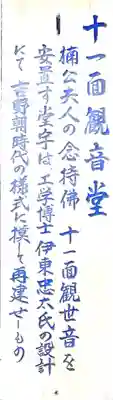 十一面観音堂
楠公夫人の念持佛 十一面観世音を
安置す堂宇は工学博士伊東忠太氏の設計
にて吉野朝時代の様式に摸して再建せしもの